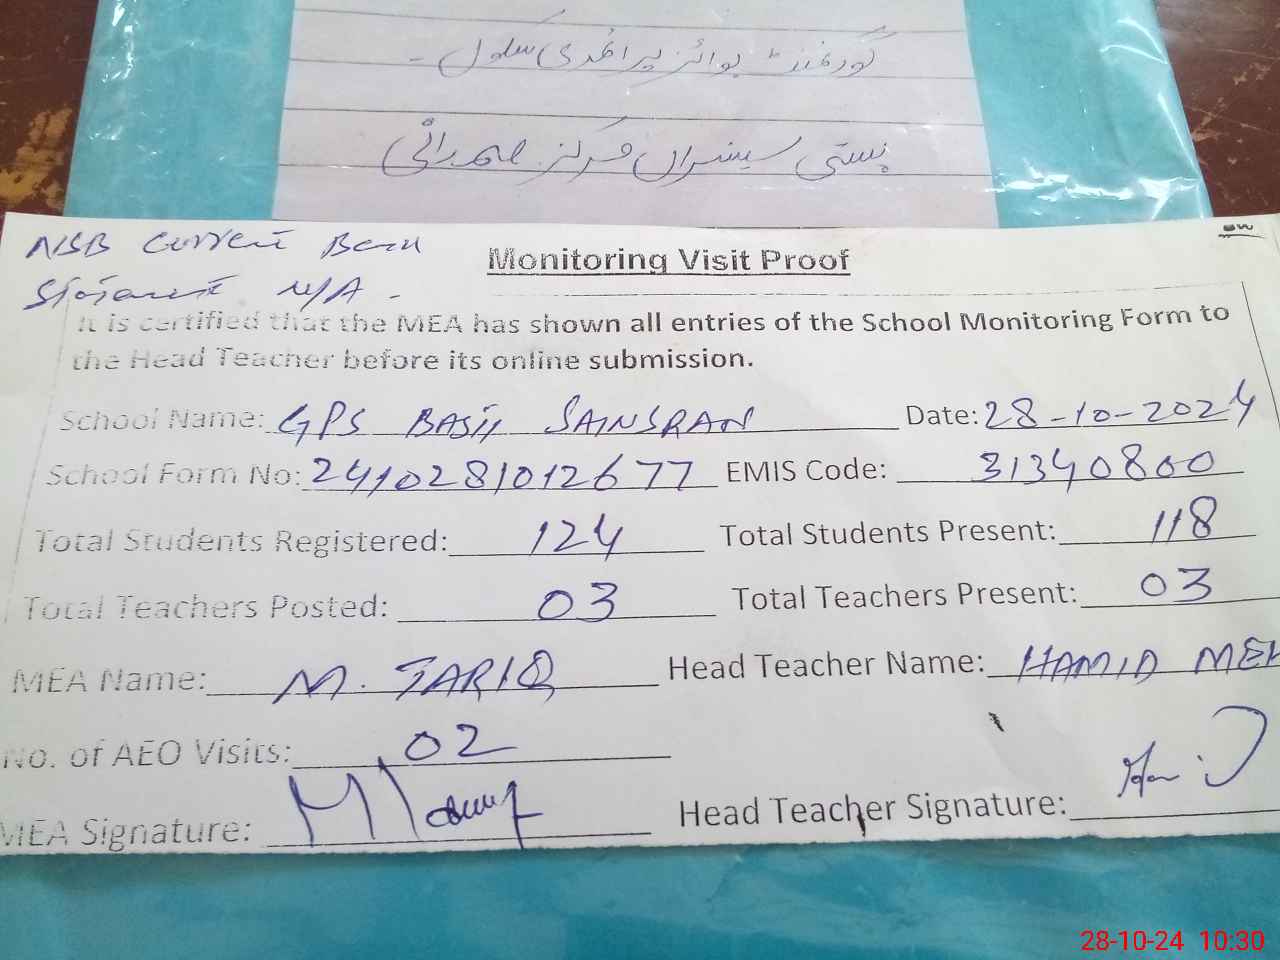 گورنمنٹ بوائز پرائمری سکول ۔
بستی سینسراں مرکز
NSB Current Bank
Statement N/A -
Monitoring Visit Proof
It is certified that the MEA has shown all entries of the School Monitoring Form to
the Head Teacher before its online submission.
School Name: GPS BASTI SAINSRAN Date: 28-10-2024
School Form No: 241028101267 7 EMIS Code: 31340800
Total Students Registered: 124 Total Students Present: 118
Total Teachers Posted: 03 Total Teachers Present: 03
MEA Name: M. TARIQ Head Teacher Name: HAMID MEH
No. of AEO Visits: 02
MEA Signature: Head Teacher Signature:
28-10-24 10:30